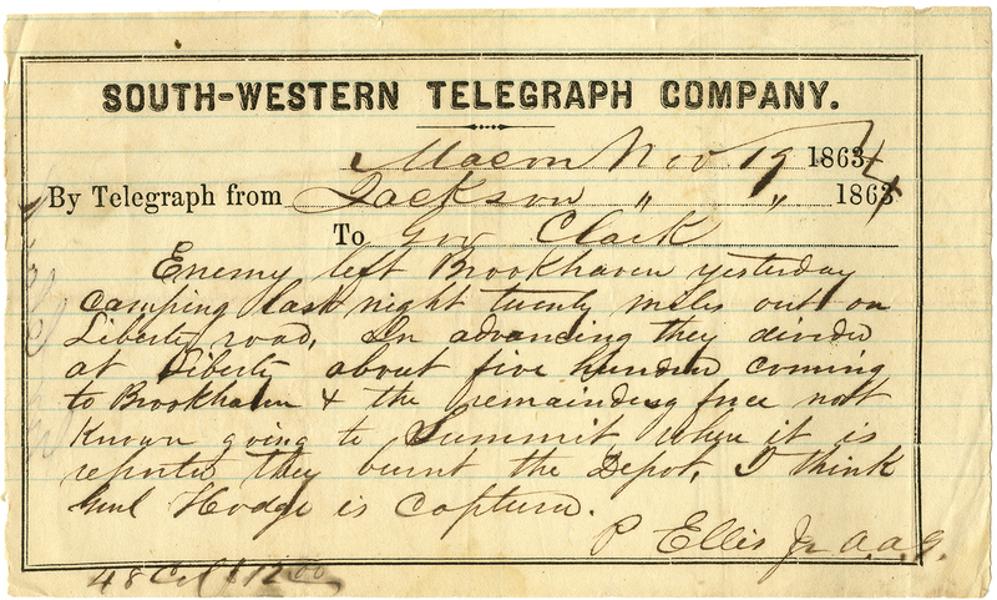 SOUTH-WESTERN TELEGRAPH COMPANY.
Macon Nov 19 1864
By Telegraph from Jackson " " 1864
To Gov Clark
Enemy left Brookhaven yesterday
camping last night twenty miles out on
Liberty road, In advancing they divided
at Liberty about five hundred coming
to Brookhaven & the remainder force not
Known going to Summit where it is
reported they burnt the Depot, I think
Genl Hodge is captured.
P Ellis Jr a.a.g.
48 Col $12 00